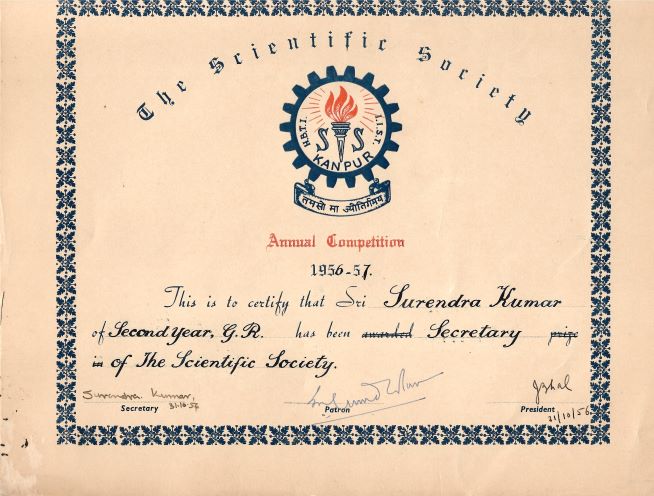 The Scientific Society
H.B.T.I. I.I.S.T.
S S
KANPUR
तमसो मा ज्योतिर्गमय
Annual Competition
1956-57.
This is to certify that Sri Surendra Kumar
of Second Year, G.R. has been awarded Secretary prize
in of The Scientific Society.
Surendra Kumar,
Secretary 31-10-56
Patron
President 31/10/56